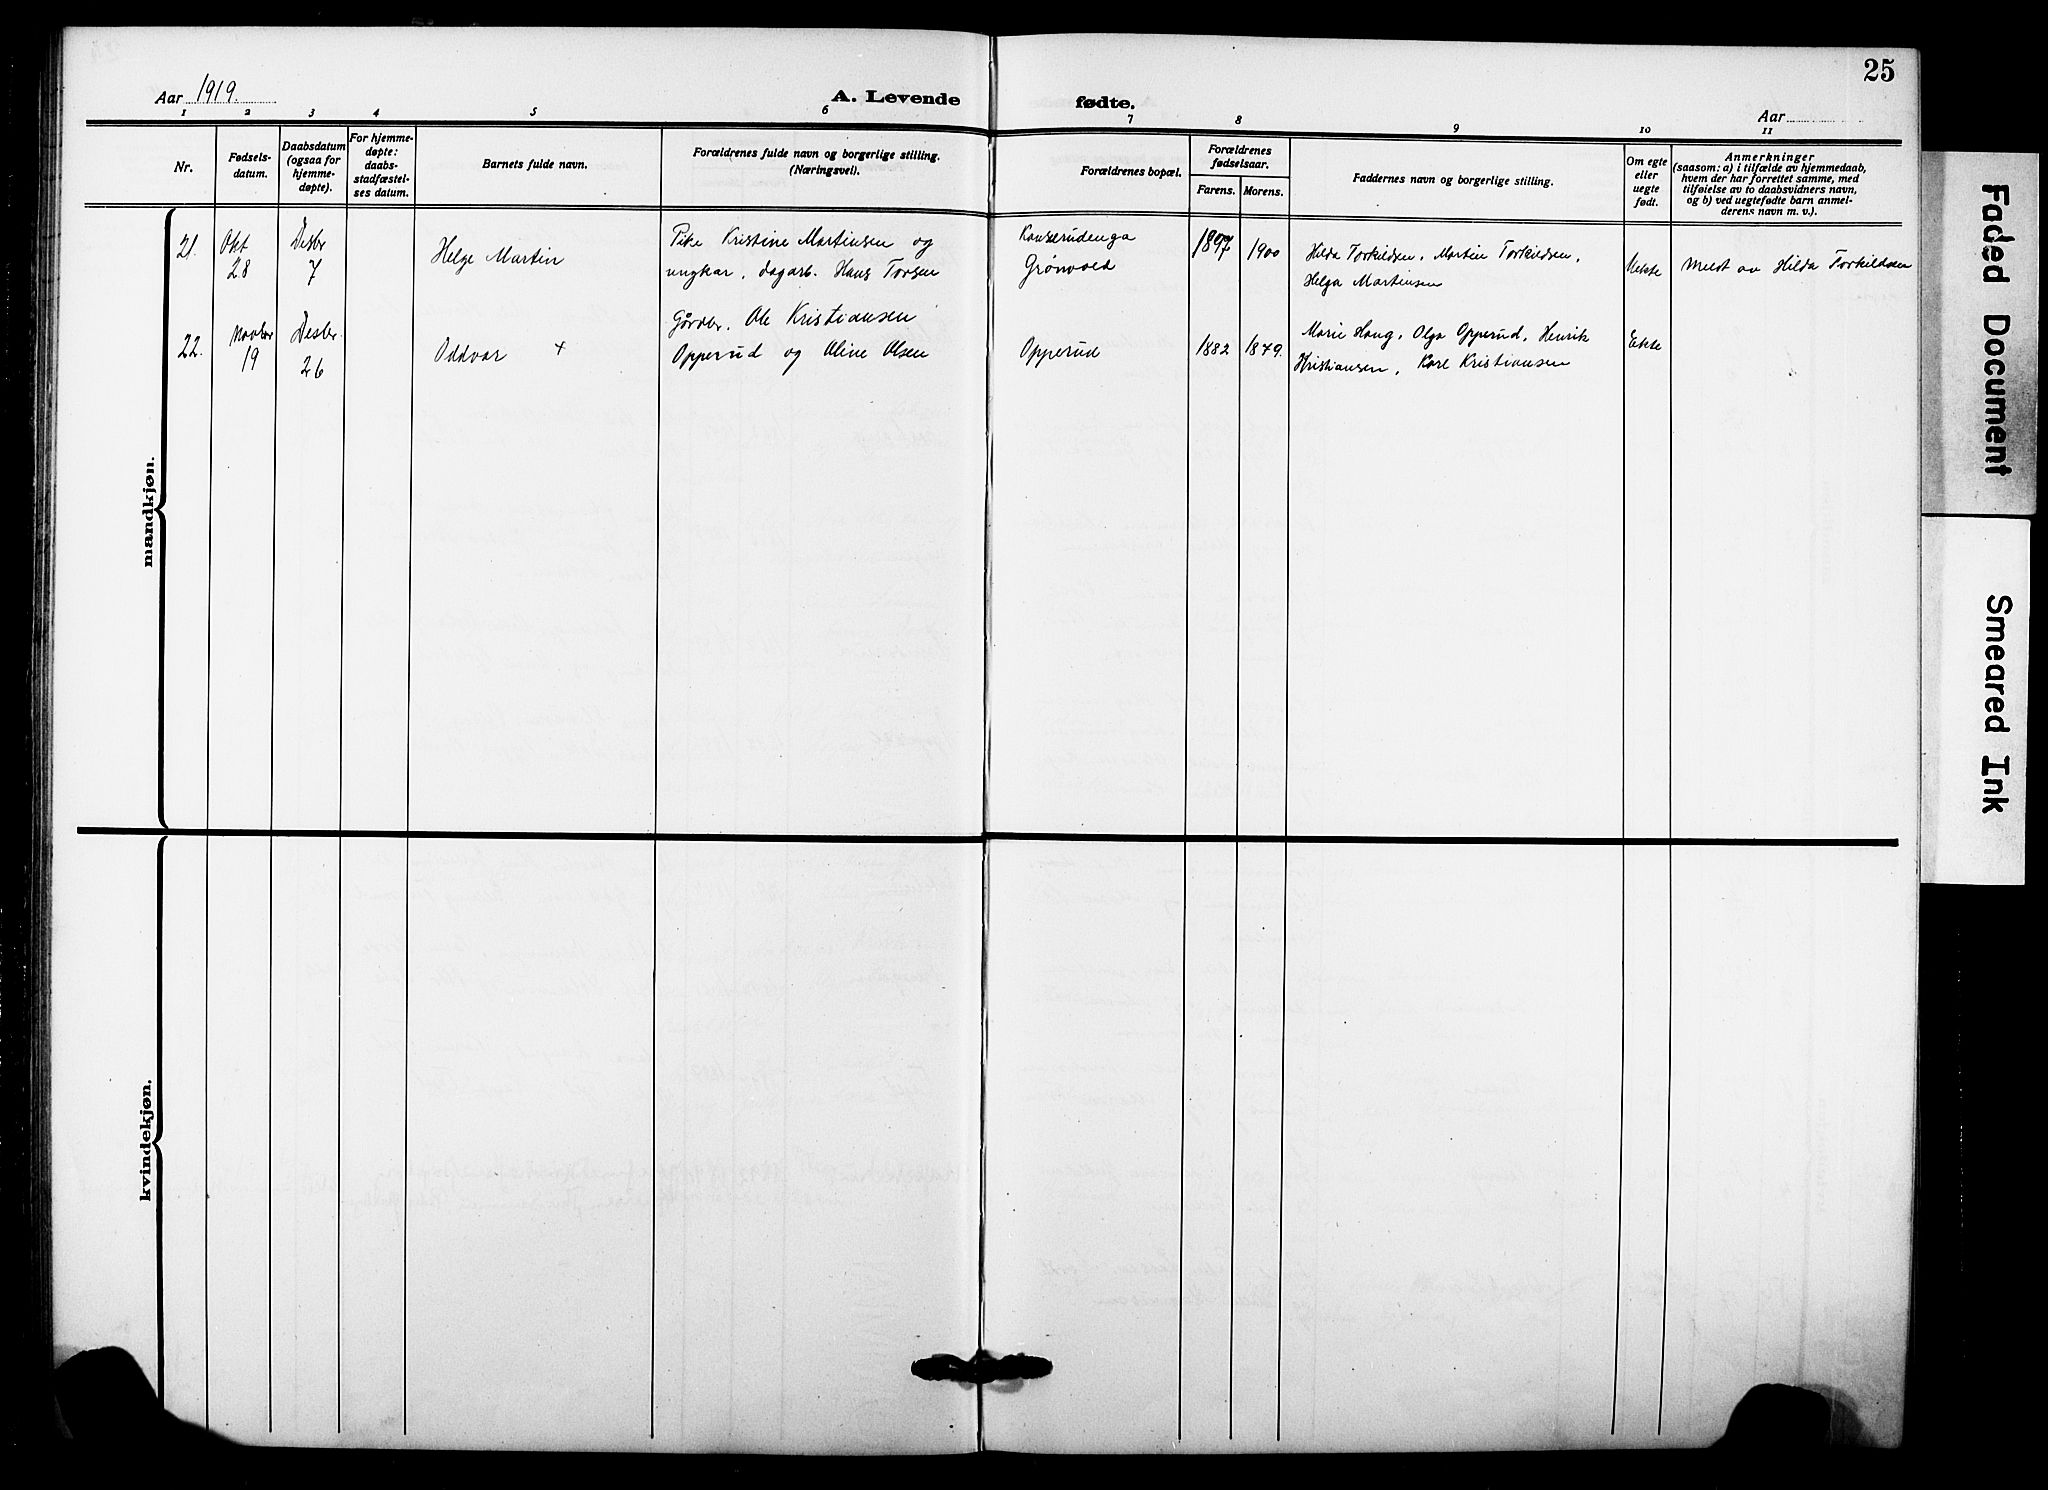 25
Aar 1919.
A. Levende fødte.
Aar
1 2 3 4 5 6 7 8 9 10 11
Nr.
Fødsels-
datum.
Daabsdatum
(ogsaa for
hjemme-
døpte).
For hjemme-
døpte:
daabs-
stadfæstel-
ses datum.
Barnets fulde navn.
Forældrenes fulde navn og borgerlige stilling.
(Næringsvei).
Forældrenes bopæl.
Forældrenes
fødselsaar.
Farens. Morens.
Faddernes navn og borgerlige stilling.
Om egte
eller
uegte
født.
Anmerkninger
(saasom: a) i tilfælde av hjemmedaab,
hvem der har forrettet samme, med
tilføielse av to daabsvidners navn,
og b) ved uegtefødte barn anmel-
derens navn m. v.).
mandkjøn.
21.
Okt
28
Desbr
7
Helge Martin
Pike Kristine Martinsen og
ungkar, dagarb. Hans Torsen
Grønvold
1897
1900
Hilda Torkildsen, Martin Torkildsen,
Helga Martinsen
Uekte
Meldt av Hilda Torkildsen
22.
Novbr
19
Desbr.
26
Oddvar +
Gårdbr. Ole Kristiansen
Opperud og Oline Olsen
Opperud
1882
1879.
Marie Haug, Olga Opperud, Henrik
Kristiansen, Karl Kristiansen
Ekte
kvindekjøn.
Faded Document
Smeared Ink